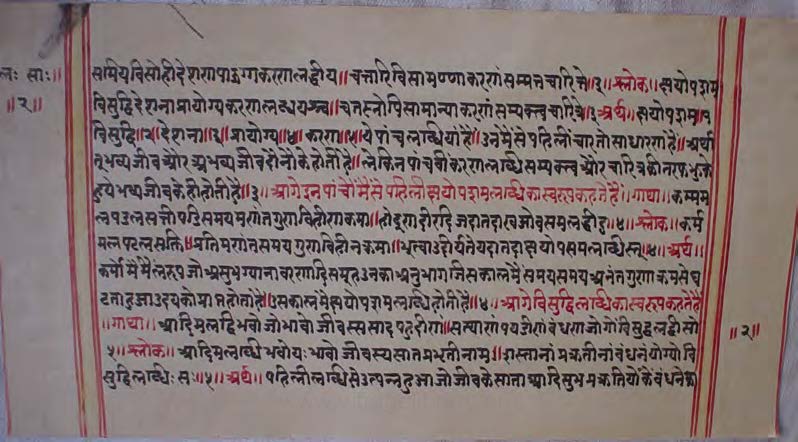 लः साः॥
॥२॥
समियविसोहीदेसणापाउग्गकरणलद्धीय॥चत्तारिविसामण्णाकरणंसम्मत्तचारित्ते॥३॥श्लोक॥क्षयोपशम
विसुद्धिदेशनाप्रायोग्यकरणलब्धयश्च॥चतस्रोपिसामान्याकरणंसम्यक्त्वचारित्रे॥३॥अर्थ॥क्षयोपशम॥१
विसुद्धि॥२॥देशना॥३॥प्रायोग्य॥४॥करण॥५॥येपांचलब्धियांहैं॥उनमेंसेपहिलींचारतोसाधारणहैं॥अर्था
त्भव्यजीवऔरअभव्यजीवदोनोंकेहोतींहैं॥लेकिनपांचवींकरणलब्धिसम्यक्त्वऔरचारित्रकीतरफझुके
हुयेभव्यजीवकेहीहोतीहै॥३॥आगेइनपांचोंमेंसेपहिलीक्षयोपशमलब्धिकास्वरूपकहतेहैं॥गाथा॥कम्मम
लपडलसत्तीपडिसमयमणंतगुणविहीणकमा॥होदूणुदीरदिजदातदाखओवसमलद्धीदु॥४॥श्लोक॥कर्म
मलपटलशक्तिः॥प्रतिमनंतसमयगुणविहीनक्रमा॥भूत्वाउदीर्यतेयदातदाक्षयोपसमलब्धिस्तु॥४॥अर्थ॥
कर्मोंमेंमैलरूपजोअसुभग्यानावरणादिसमूहउनकाअनुभागजिसकालमेंसमयसमयअनंतगुणाक्रमसेघ
टताहुआउदयकोप्राप्तहोताहै॥उसकालमेंक्षयोपशमलब्धिहोतीहै॥४॥आगेविसुद्धिलब्धिकास्वरूपकहतेहैं
॥गाथा॥आदिमलद्धिभवोजोभावोजीवस्ससादपहुदीणं॥सत्थाणंपयडीणंबंधणजोगोविसुद्धलद्धीसो
५॥श्लोक॥आदिमलब्धिभवोयःभावोजीवस्यसातप्रभृतीनाम्॥शस्तानांप्रकृतीनांबंधनयोग्योवि
सुद्धिलब्धिःसः॥५॥अर्थ॥पहिलीलब्धिसेउत्पन्नहुआजोजीवकेसाताआदिसुभप्रकृतियोंकेबंधनेका
॥२॥